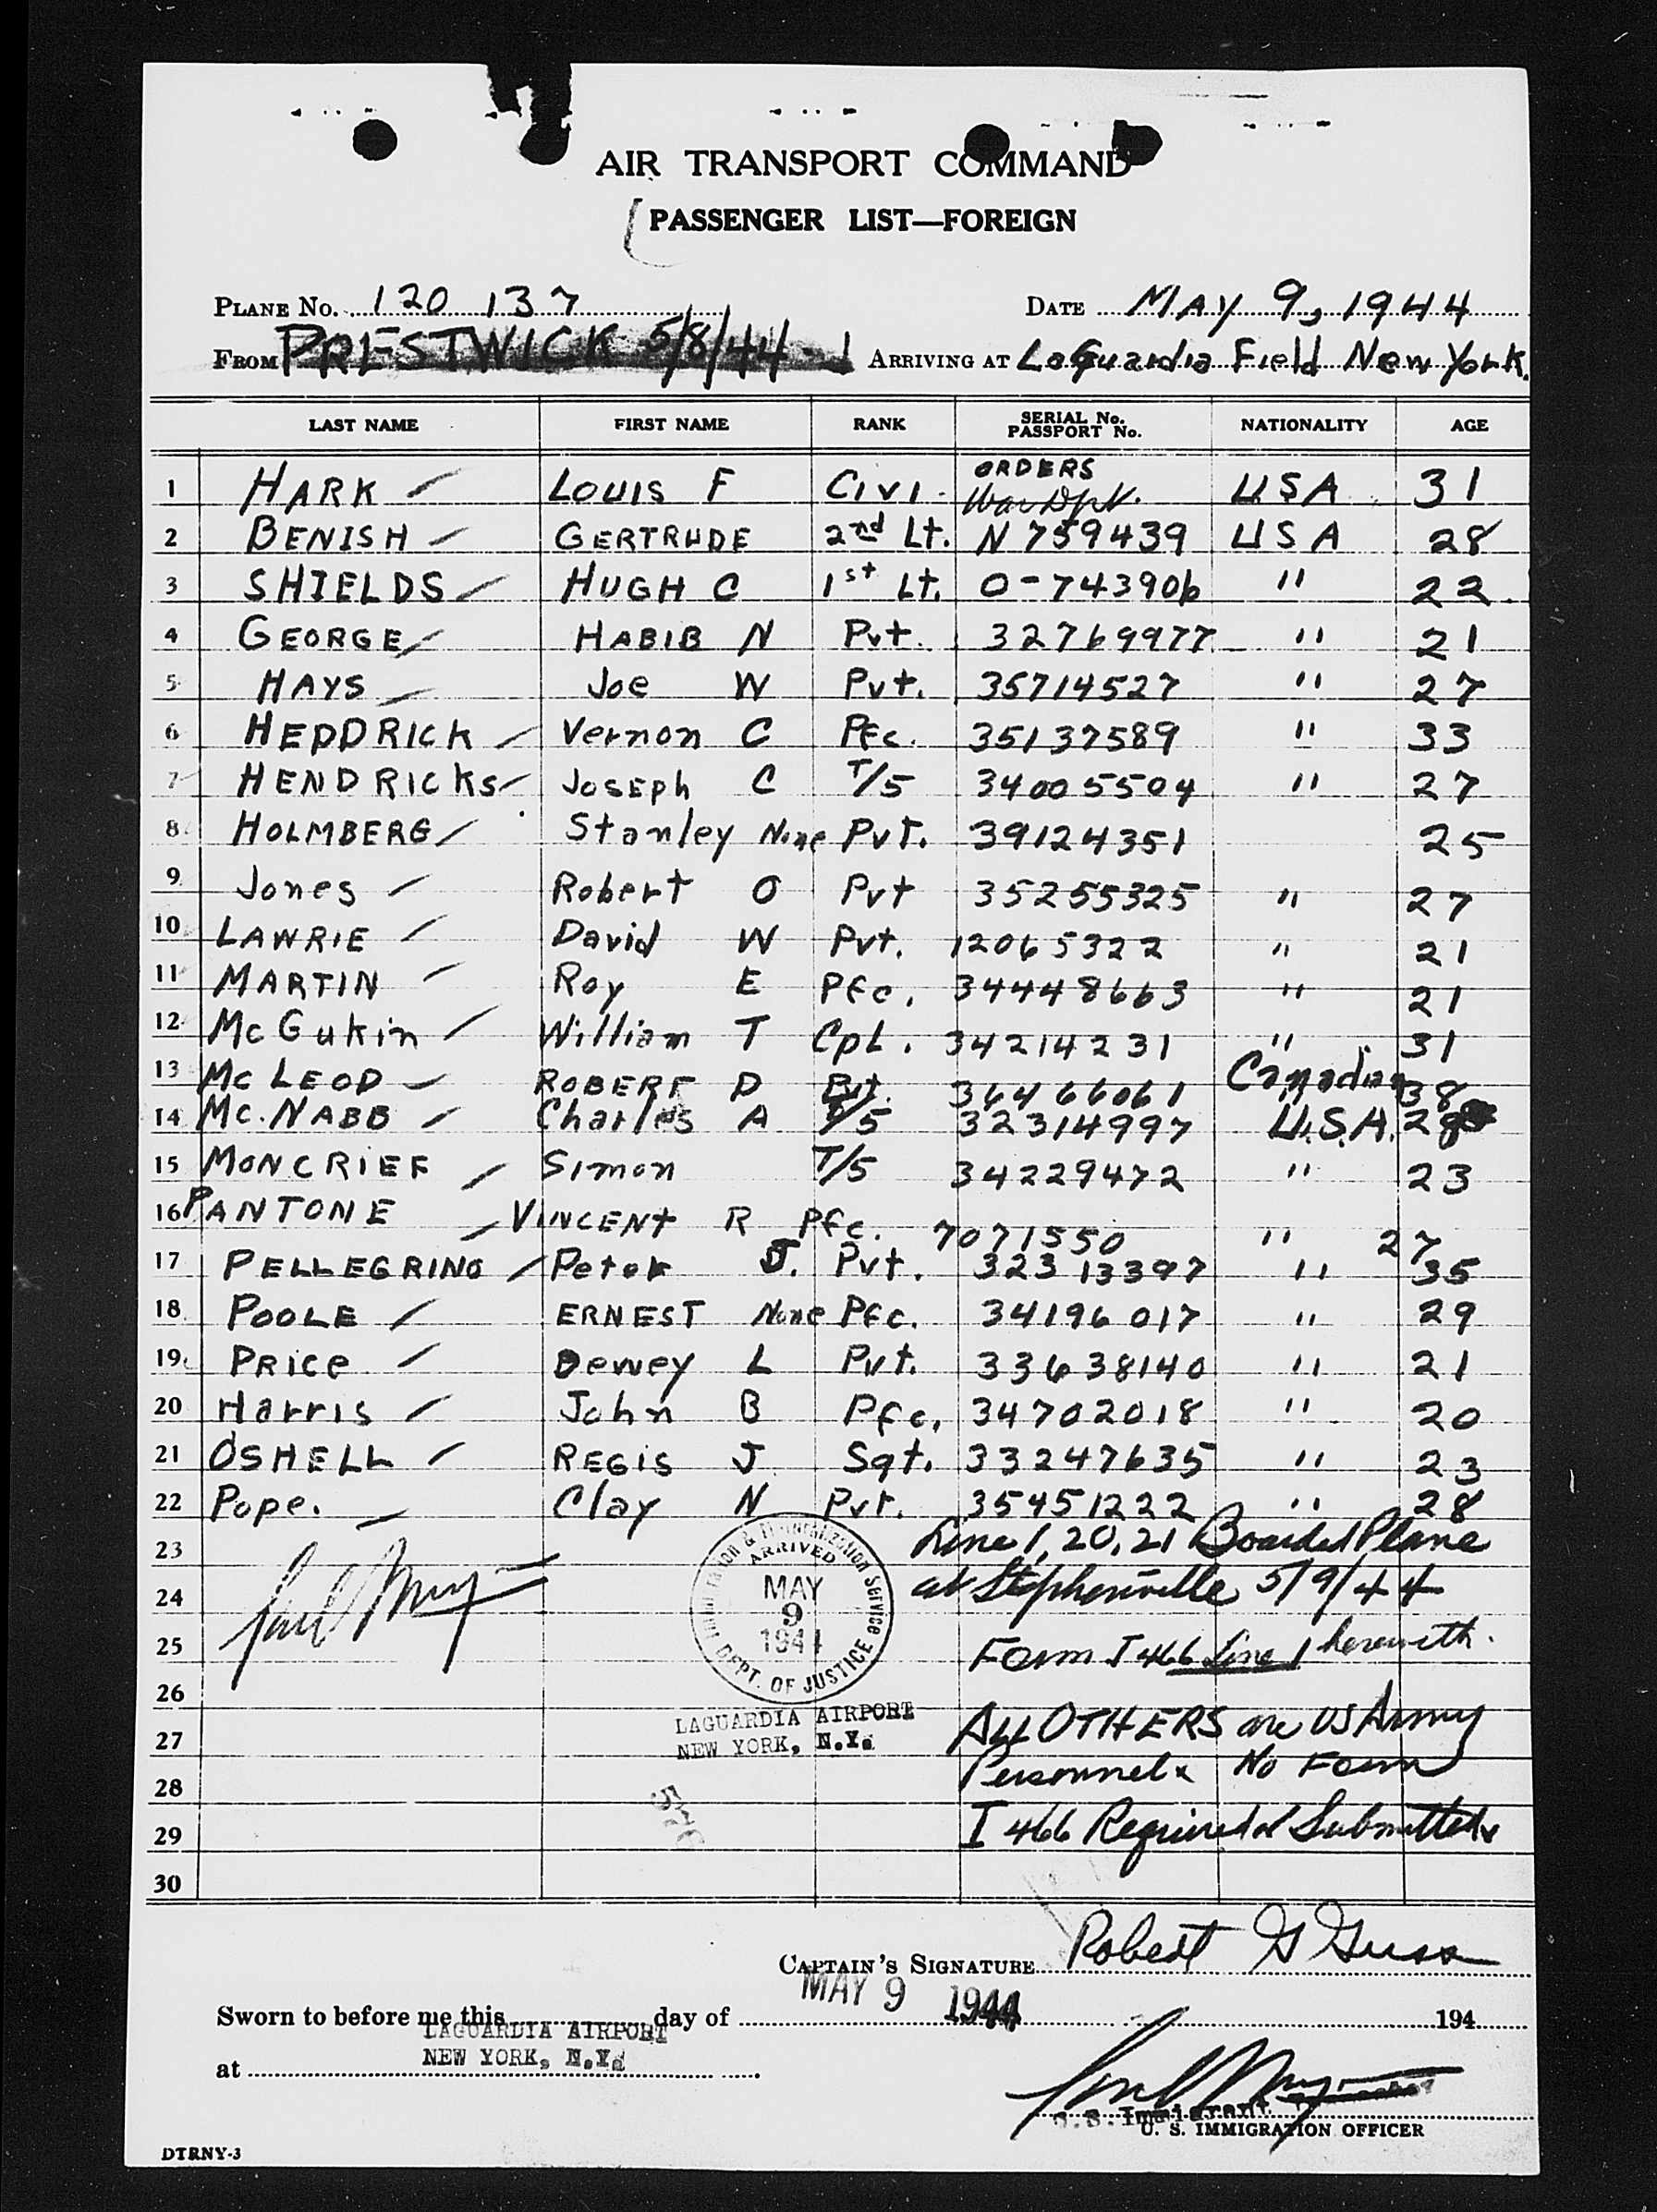 AIR TRANSPORT COMMAND
PASSENGER LIST—FOREIGN
PLANE No. 120 137 DATE MAY 9, 1944
FROM PRESTWICK 5/8/44 ARRIVING AT LaGuardia Field New York.
LAST NAME FIRST NAME RANK SERIAL No. PASSPORT No. NATIONALITY AGE
1 HARK LOUIS F Civi. ORDERS War Dpt. USA 31
2 BENISH GERTRUDE 2nd Lt. N 759439 USA 28
3 SHIELDS HUGH C 1st Lt. O-743906 " 22
4 GEORGE HABIB N Pvt. 32769977 " 21
5 HAYS Joe W Pvt. 35714527 " 27
6 HEDDRICK Vernon C Pfc. 35137589 " 33
7 HENDRICKS JOSEPh C T/5 34005504 " 27
8 HOLMBERG Stanley None PvT. 39124351 25
9 Jones Robert O Pvt 35255325 " 27
10 LAWRIE David W Pvt. 12065322 " 21
11 MARTIN Roy E Pfc. 34448663 " 21
12 McGukin William T CpL. 34214231 " 31
13 Mc LEOD ROBERT D Pvt. 36466061 Canadian 38
14 Mc.NABB Charles A T/5 32314997 U.S.A. 28
15 MONCRIEF Simon T/5 34229472 " 23
16 PANTONE VINCENt R Pfc. 7071550 " 27
17 PELLEGRINO Peter J. Pvt. 32313397 " 35
18 POOLE ERNEST None Pfc. 34196017 " 29
19 PRICe Dewey L Pvt. 33638140 " 21
20 Harris John B Pfc. 34702018 " 20
21 O'SHELL REGIS J Sgt. 33247635 " 23
22 Pope. Clay N Pvt. 35451222 " 28
23 Line 1, 20, 21 Boarded Plane
24 at Stephenville 5/9/44
25 Form I 466 Line 1 herewith.
26
27 ALL OTHERS are US Army
28 Personnel. No Form
29 I 466 Required or Submitted.
30
Immigration & Naturalization Service
ARRIVED
MAY
9
1944
DEPT. OF JUSTICE
LAGUARDIA AIRPORT
NEW YORK, N.Y.
CAPTAIN'S SIGNATURE Robert G
MAY 9 1944
Sworn to before me this day of 194
LAGUARDIA AIRPORT
at NEW YORK, N.Y.
U.S. Immigrant
U. S. IMMIGRATION OFFICER
DTRNY-3